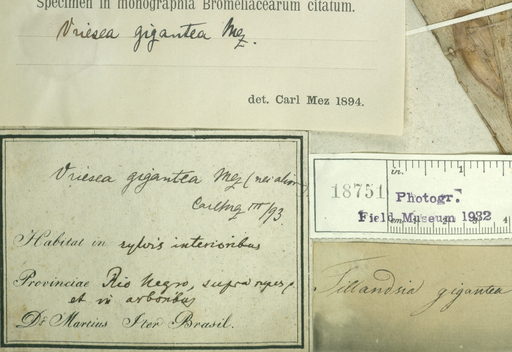 Specimen in monographia Bromeliacearum citatum.
Vriesea gigantea Mez.
det. Carl Mez 1894.
Vriesea gigantea Mez
Carl Mez III/93
Habitat in sylvis interioribus
Provinciae Rio Negro, supra rupes
et in arboribus
Dr Martius Iter Brasil.
in. 1
18751
Photogr.
Field Museum 1932
Tillandsia gigantea